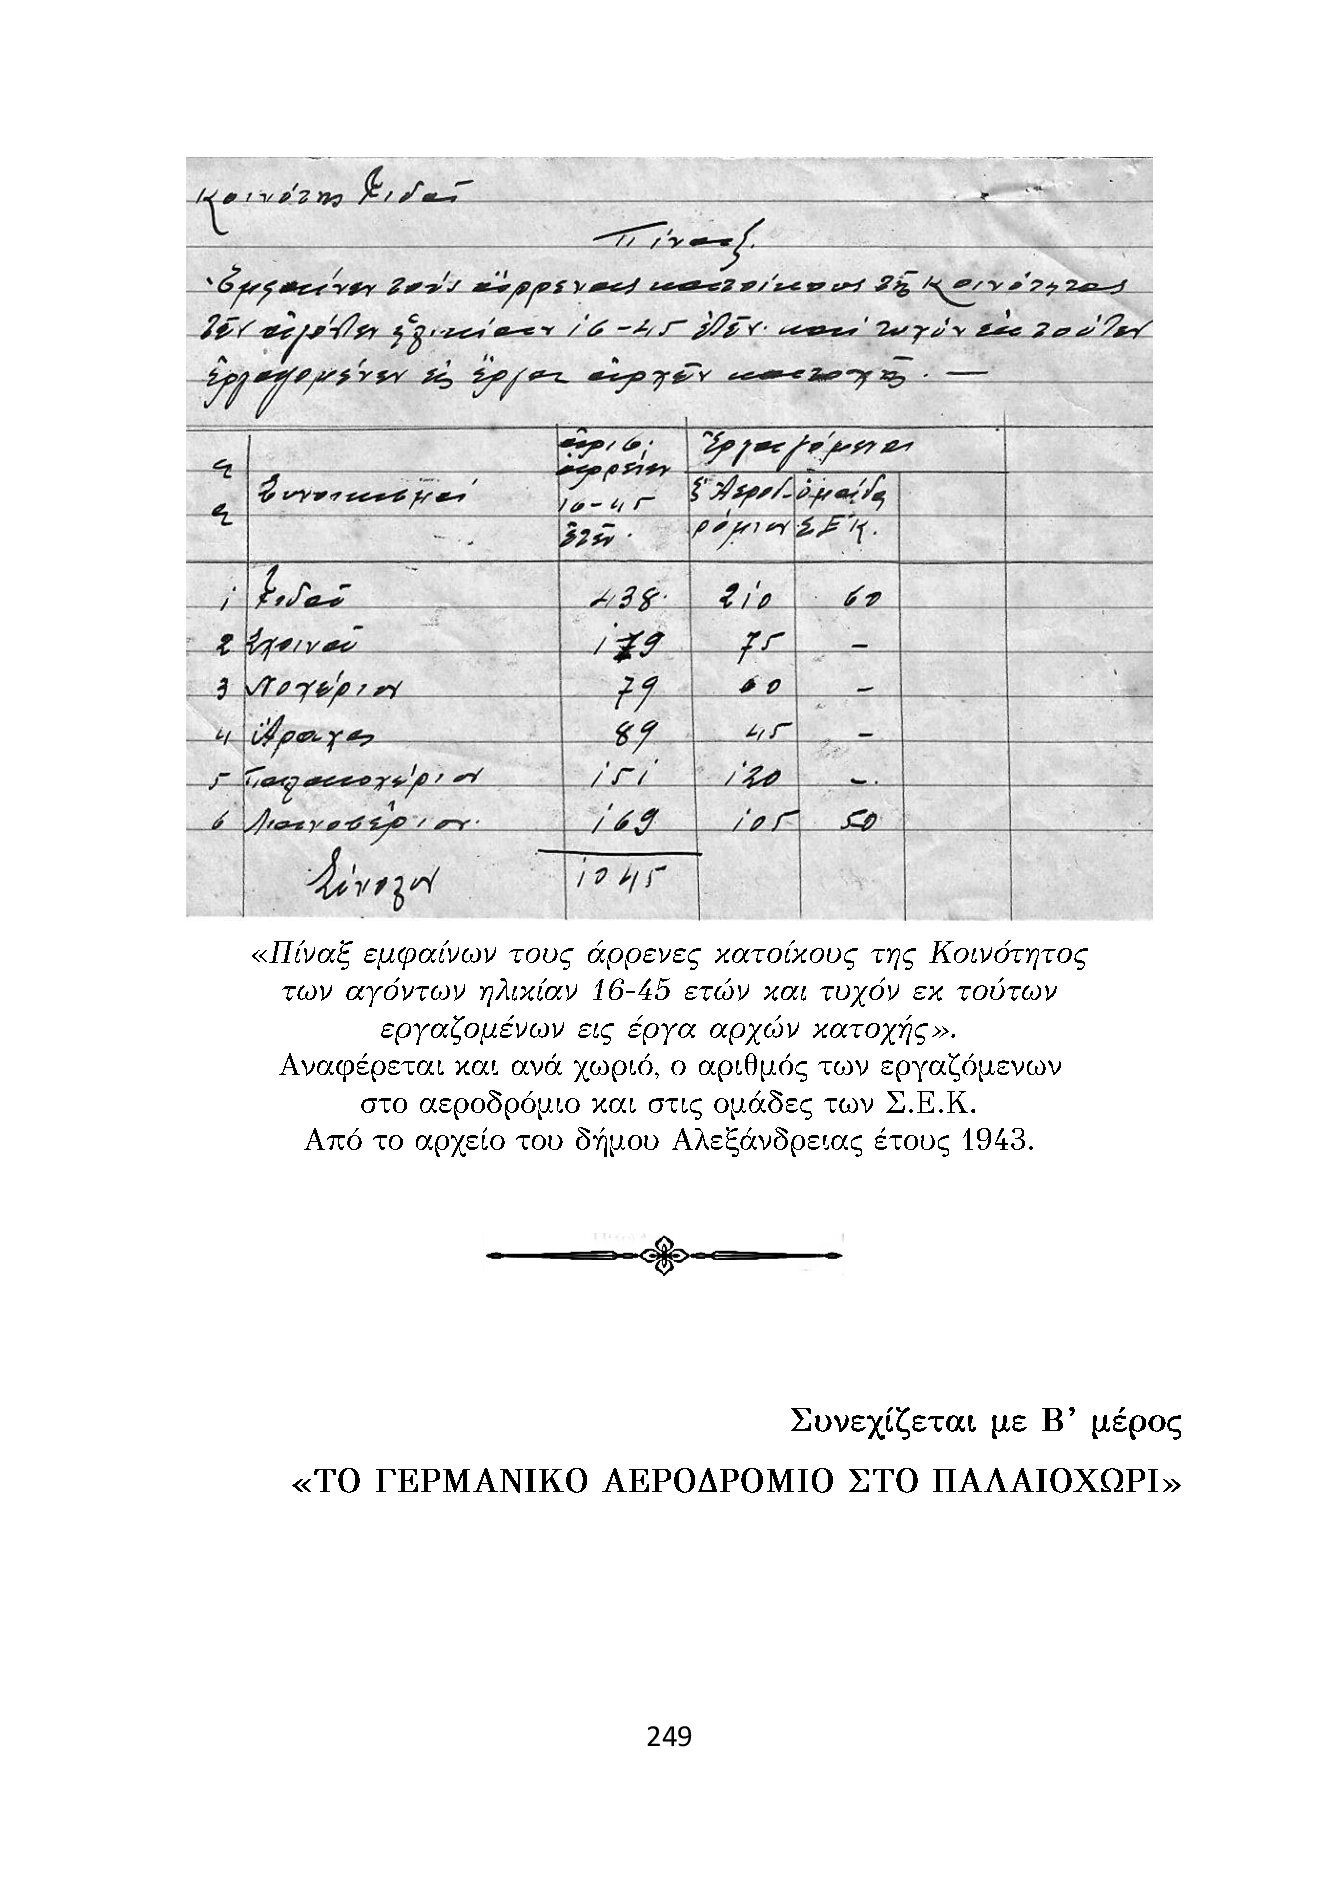 Κοινότης Γιδᾶ
Πίναξ.
Ἐμφαίνων τούς ἄρρενας κατοίκους τῆς Κοινότητος
τῶν ἀγόντων ἡλικίαν 16-45 ἐτῶν καί τυχόν ἐκ τούτων
ἐργαζομένων εἰς ἔργα ἀρχῶν κατοχῆς. —
α α Συνοικισμοί ἀριθ. ἀρρένων 16-45 ἐτῶν Ἐργαζόμενοι
Ἀεροδρόμιον ὁμάδα Σ Ε Κ.
1 Γιδᾶ 438 210 60
2 Σχοινᾶ 179 75 -
3 Νοχώριον 79 60 -
4 Ἄραχος 89 45 -
5 Παλαιοχώριον 151 120 -
6 Λιανοβέριον 169 105 50
Σύνολον 1045
«Πίναξ εμφαίνων τους άρρενες κατοίκους της Κοινότητος
των αγόντων ηλικίαν 16-45 ετών και τυχόν εκ τούτων
εργαζομένων εις έργα αρχών κατοχής».
Αναφέρεται και ανά χωριό, ο αριθμός των εργαζόμενων
στο αεροδρόμιο και στις ομάδες των Σ.Ε.Κ.
Από το αρχείο του δήμου Αλεξάνδρειας έτους 1943.
Συνεχίζεται με Β’ μέρος
«ΤΟ ΓΕΡΜΑΝΙΚΟ ΑΕΡΟΔΡΟΜΙΟ ΣΤΟ ΠΑΛΑΙΟΧΩΡΙ»
249